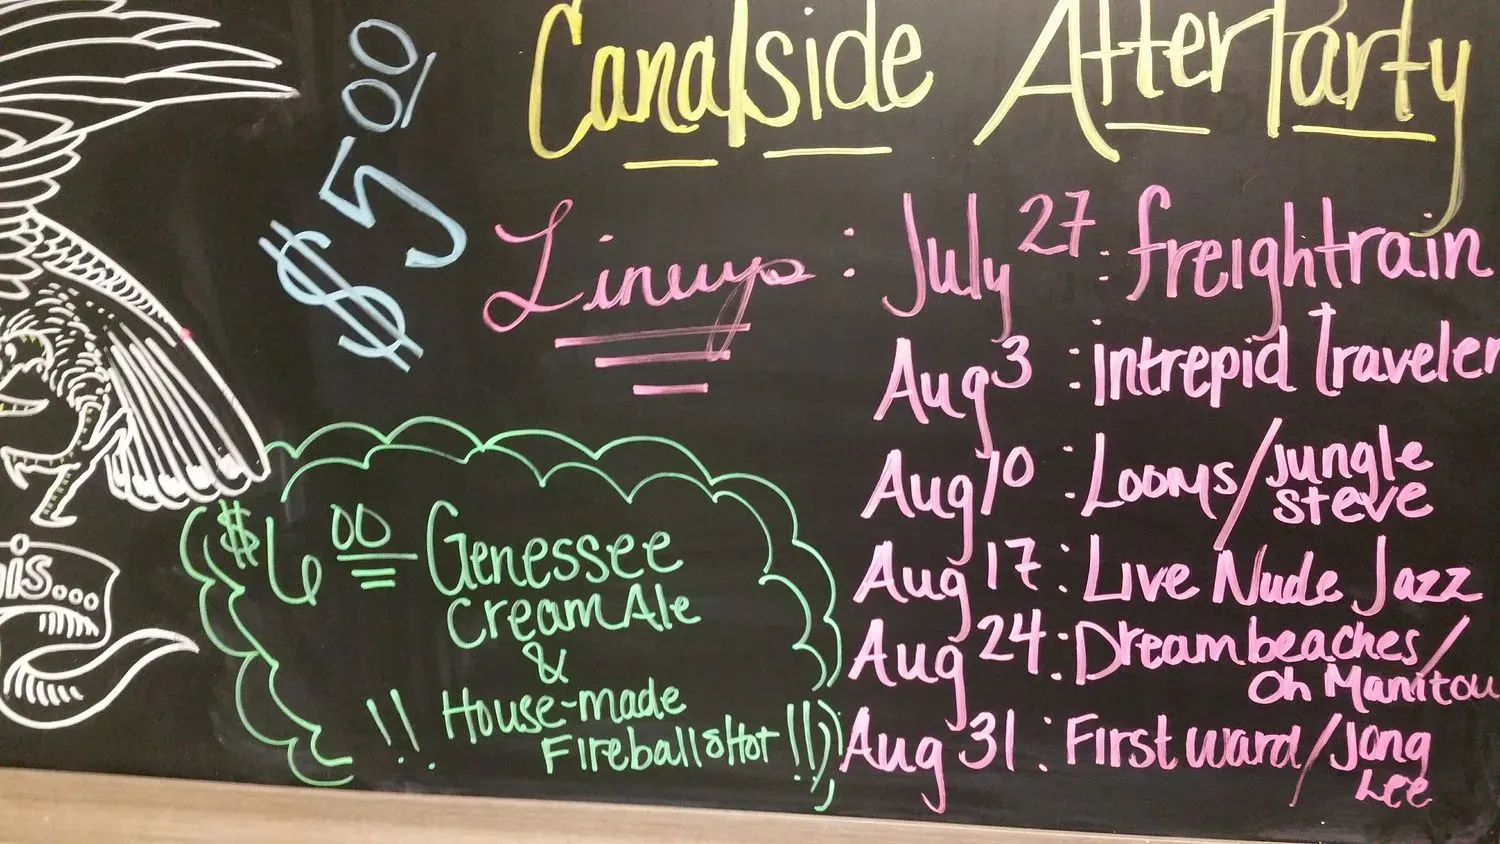 Canalside AfterParty
$5 00
Lineups: July 27: Freightrain
Aug 3: Intrepid Traveler
Aug 10: Looms/Jungle Steve
Aug 17: Live Nude Jazz
Aug 24: Dreambeaches/
Oh Manitou
Aug 31: First ward/Jong
Lee
$6 00 Genessee
Cream Ale
&
!! House-made
Fireball shot!!
is...